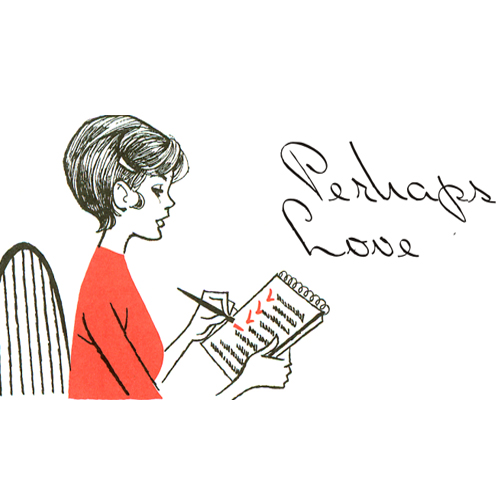 Perhaps
Love